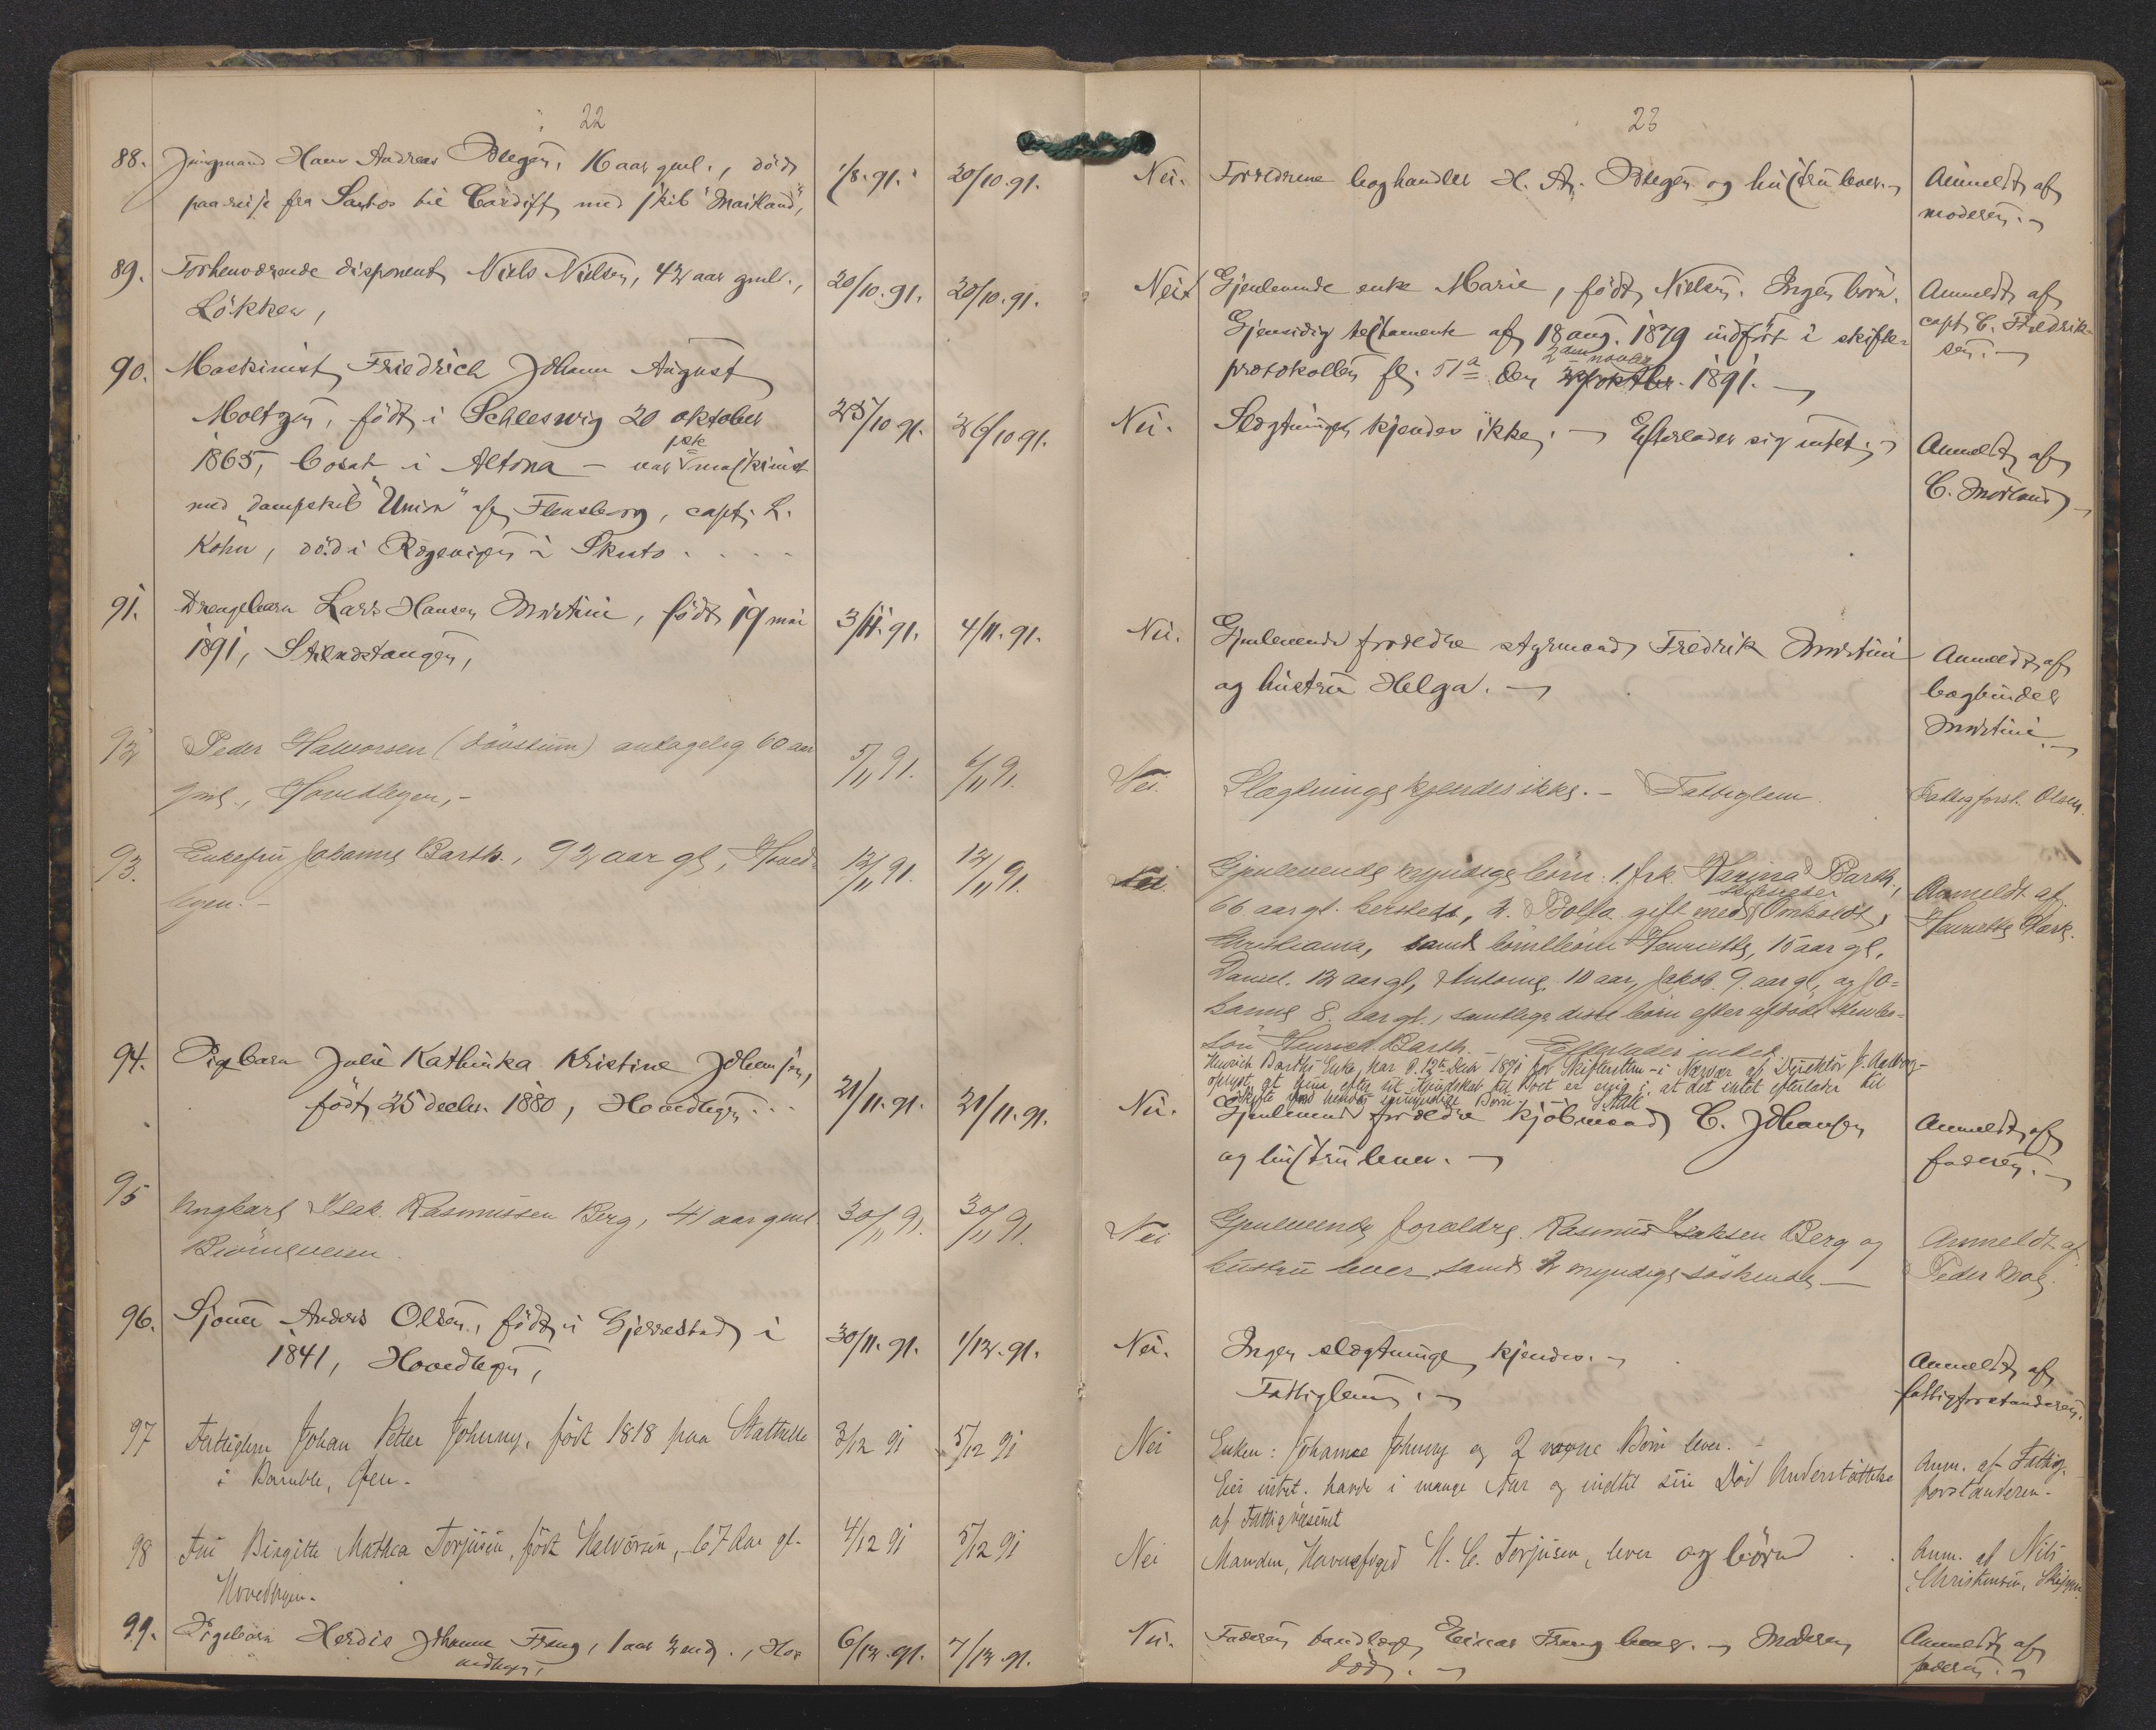 22
88. Jungmand Hans Andreas Blegen, 16 aar gml., död
paa reise fra Santos til Cardiff med skib "Maikland",
1/8.91. 20/10.91.
89. Forhenværende disponent Niels Nielsen, 42 aar gml.,
Lökken,
20/10.91. 20/10.91.
90. Maskinist Friedrich Johann August
Moltzen, födt i Schleswig 20 oktober
1865, bosat i Altona – var 1ste maskinist
med dampskib "Union" af Flensborg, capt. L.
Kohn, död i
25/10 91. 26/10 91.
91. Drengebarn Lars Hansen Martini, födt 19 mai
1891,
3/11.91. 4/11.91.
92 Peder Halvorsen (dövstum) antagelig 60 aar
gml., Hovedbyen,-
5/11 91. 6/11 91.
93. Enkefru Johanne Barth., 92 aar gl, Hoved-
byen.-
12/11 91. 12/11 91.
94. Pigebarn Julie Kathinka Kristine Johansen,
födt 25 decbr. 1880, Hovedbyen...
21/11.91. 21/11.91.
95 Ungkarl Isak Rasmussen Berg, 41 aar gml
30/11 91. 30/11 91.
96. Sjömand Anders Olsen, födt i Gjerrestad i
1841, Hovedbyen,
30/11.91. 1/12.91.
97 Fattiglem Johan Petter Johnny, født 1818 paa Stathelle
i Bamble,
3/12 91 5/12 91
98 Fru Birgitte Mathea Torjusen, født Halvorsen, 67 Aar gl.
Hovedbyen.
4/12 91 5/12 91
99. Pigebarn Herdis Johanne Frang, 1 aar 3 mdr., Hov
edbyen,
6/12.91. 7/12.91.
23
Nei. Forældrene boghandler H. A. Blegen og hustru lever.
Anmeldt af
moderen.
Nei Gjenlevende enke Marie, födt Nielsen. Ingen börn.
Gjensidig testamente af 18 aug. 1879 indfört i skifte-
protokollen fl. 51a den 2den novbr. 1891.
Anmeldt af
capt. C. Fredrik-
sen.
Nei. Slægtninger kjendes ikke. – Efterlader sig intet.
Anmeldt af
C. Mörland
Nei. Gjenlevende forældre styrmand Fredrik Martini
og hustru Helga.
Anmeldt af
bogbinder
Martini.
Nei. Slægtninge kjendes ikke. – Fattiglem.
Fattigforst. Olsen.
Nei. Gjenlevende myndige börn: 1. frk. Barth,
66 aar gl. hersteds, 2. gift med Omholdt,
Christiania, samt börnebörn Henriette, 15 aar gl.
Daniel. 12 aar gl, Antonie. 10 aar, Jakob. 9. aar gl, og Jo-
hanne 8. aar gl., samtlige disse börn efter afdöde
sön Henrich Barth. – Efterlader intet.
Anmeldt af
Henriette Barth.
Henrich Barths Enke, har d. 12te Decbr 1891 for Skifteretten i Nærvær af Direktör
oplyst, at hun, efter sit Kjendskab til Boet er enig i, at det intet efterlader til
umyndige Börn.
Nei. Gjenlevende forældre kjöbmand C. Johansen
og hustru lever.
Anmeldt af
faderen.
Nei Gjenlevende forældre. Rasmus Isaksen Berg og
hustru lever samt 2 myndige söskende –
Anmeldt af
Peder
Nei. Ingen slægtninge kjendes.
Fattiglem.
Anmeldt af
fattigforstanderen.
Nei Enken: Johanne Johnny og 2 voxne Börn lever. –
Eier intet. havde i mange Aar og indtil sin Död Understöttelse
af Fattigvæsenet
Anm. af Fattig-
forstanderen.
Nei Manden, Havnefoged N. C. Torjusen, lever og börn
Anm. af Nils
Christensen,
Nei. Faderen tandlæge Einar Frang lever. Moderen
död.
Anmeldt af
faderen.